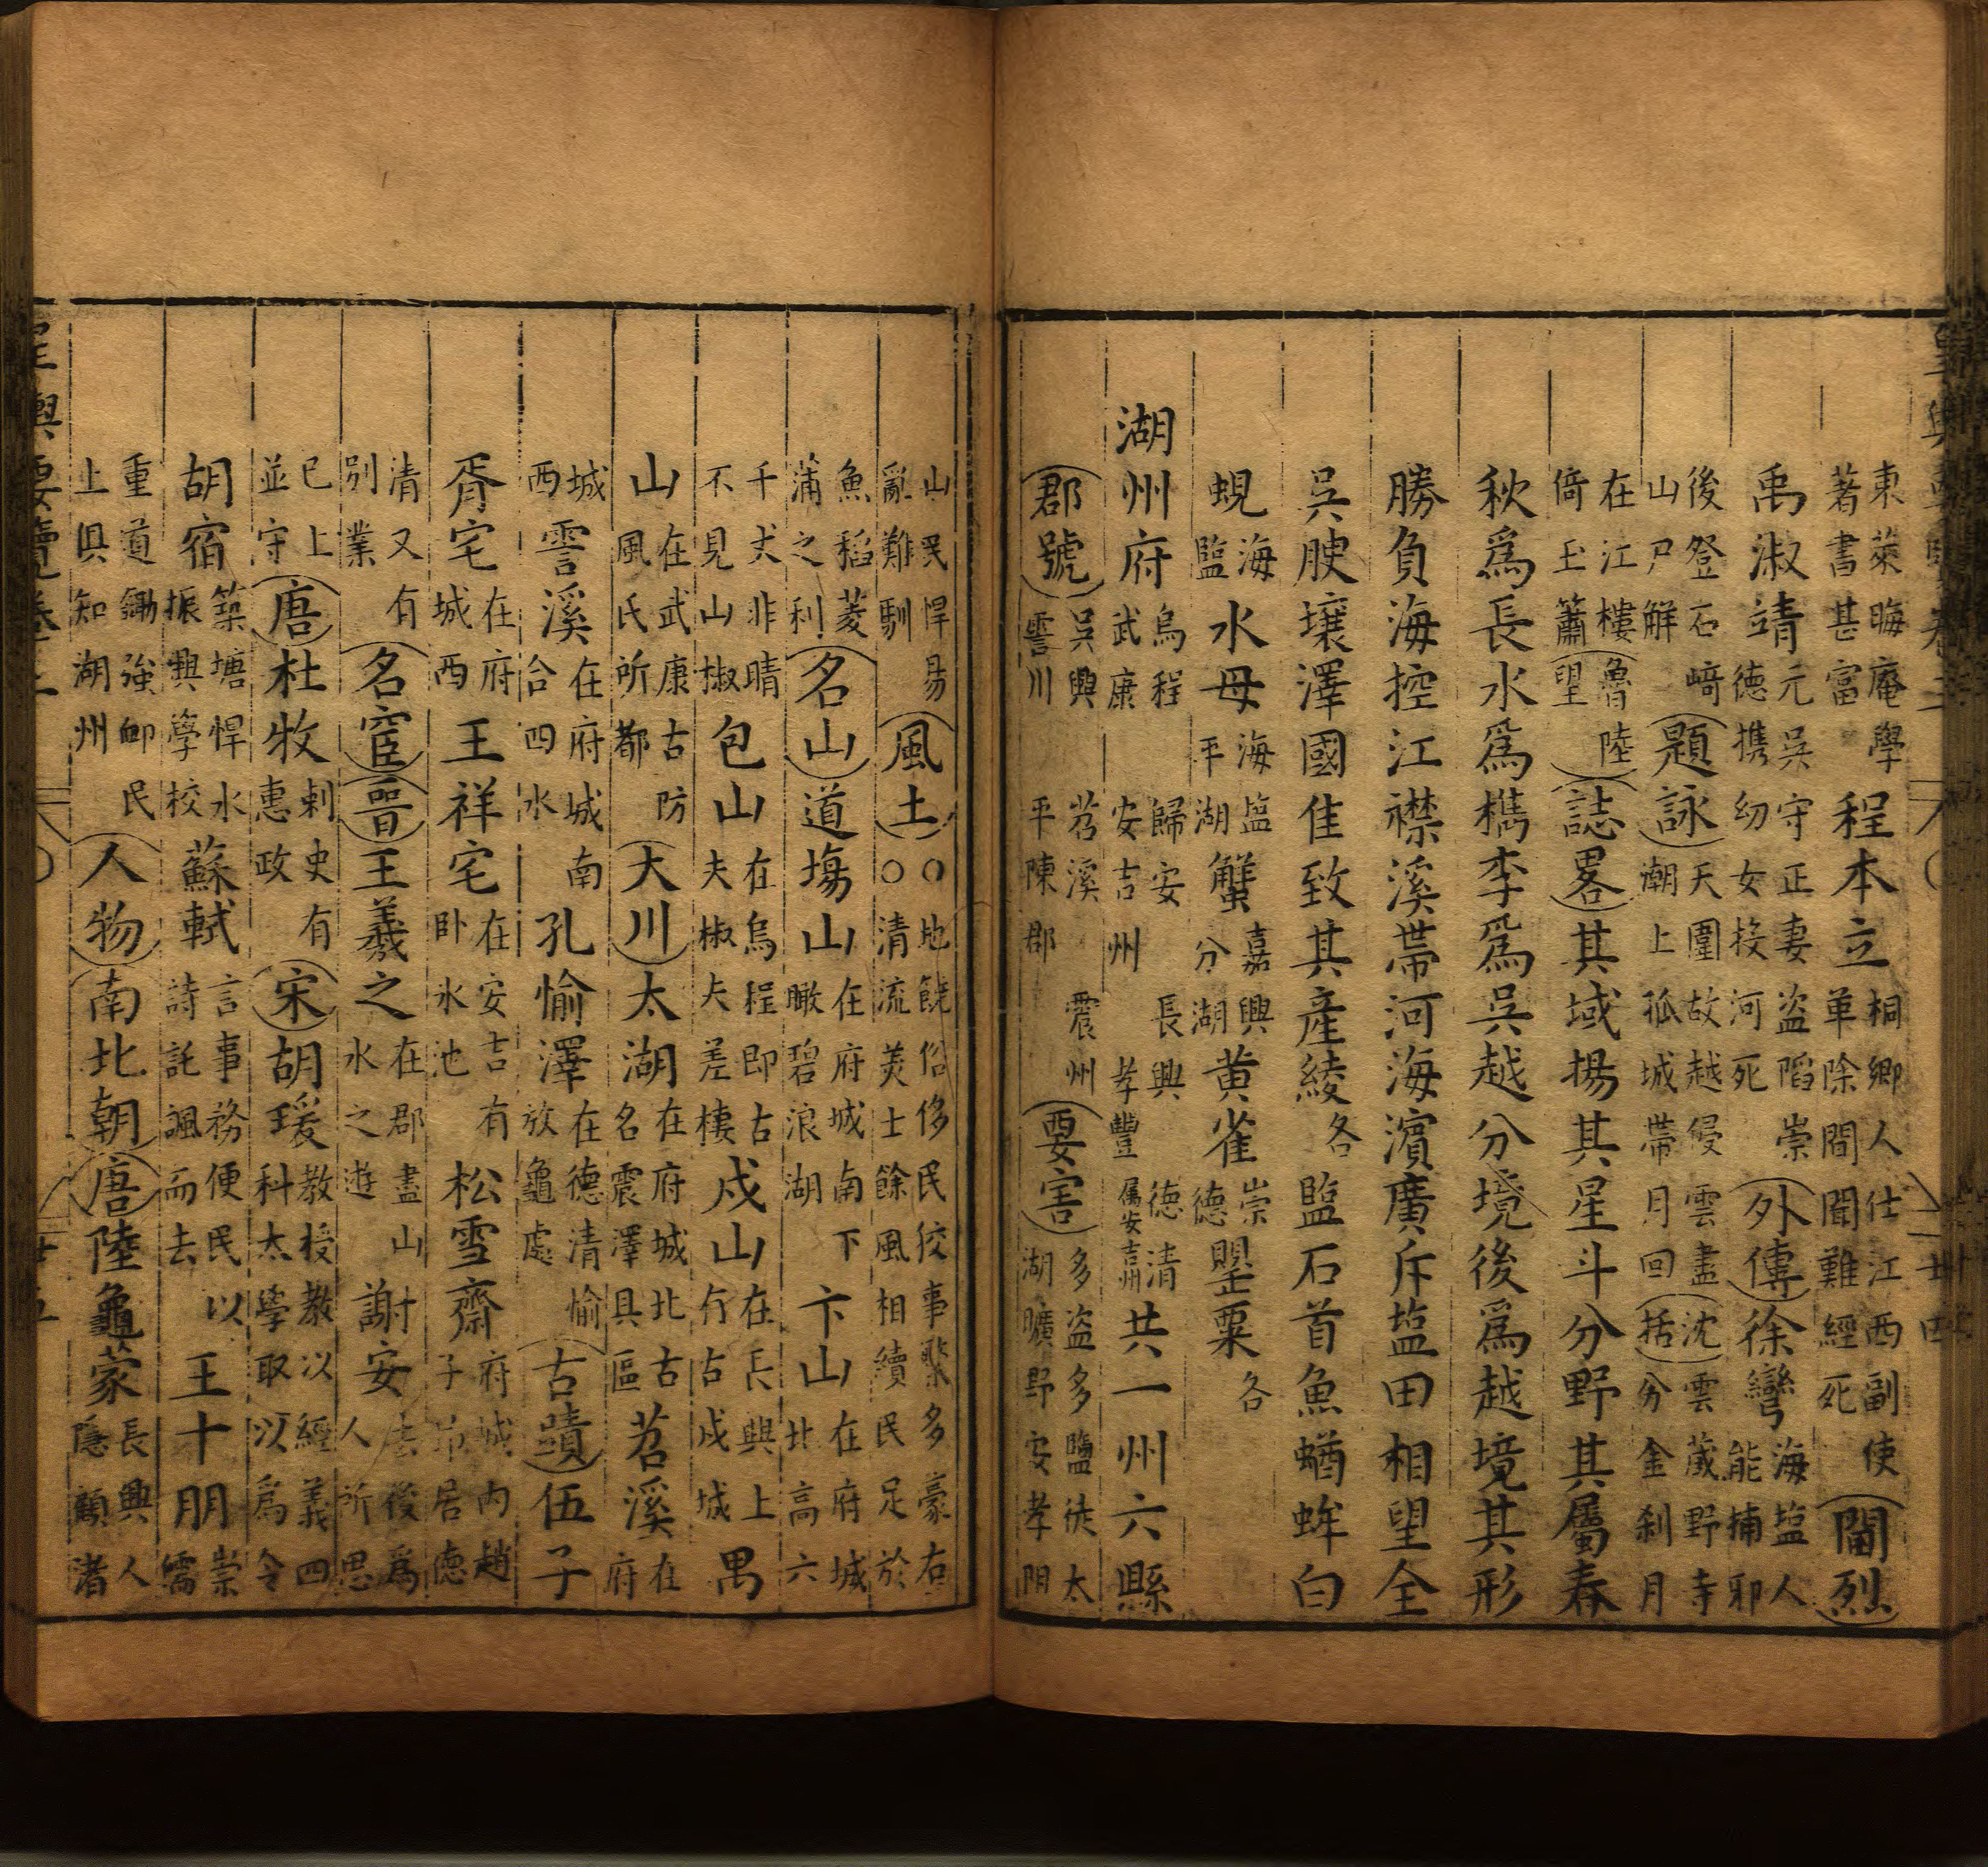 東萊晦庵學著書甚富程本立桐鄉人仕江西副使革除間聞難經死閫烈
禹淑靖元吳守正妻盜陷崇德携幼女投河死外傳徐彎海塩人能捕邪
後登石﨑山尸解題詠天圍故越侵雲盡潮上孤城帶月回沈括雲藏野寺分金刹月
在江樓倚玉簫魯陸望誌畧其域揚其星斗分野其屬春
秋爲長水爲檇李爲吳越分境後爲越境其形
勝負海控江襟溪帶河海濱廣斥塩田相望全
吳腴壤澤國佳致其產綾各監石首魚蝤蛑白
蜆海監水母海塩平湖蟹嘉興分湖黄雀崇德甖粟各
湖州府烏程武康歸安安吉州長興孝豐德清屬安吉州共一州六縣
郡號吳興霅川苕溪平陳郡震州要害多盗多鹽徒太湖曠野安孝阴
皇輿要覽卷二 廿四
山民悍易亂難馴風土○地饒俗侈民佼事繁多豪右○清流美士餘風相續民足於
魚稻菱蒲之利名山道塲山在府城南下瞰碧浪湖卞山在府城北高六
千丈非晴不見山椒包山在烏程即古夫椒夫差棲戍山在長興上伩古戍城禺
山在武康古防風氏所都大川太湖在府城北古名震澤具區苕溪在府
城西霅溪在府城南合四水孔愉澤在德清愉放龜處古蹟伍子
胥宅在府城西王祥宅在安吉有卧氷池松雪齋府城内趙子昻居德
清又有別業名宦晋王羲之在郡盡山水之遊謝安去後爲人所思
已上並守唐杜牧刺史有惠政宋胡瑗教授教以經義四科太學取以爲令
胡宿築塘悍水振興學校蘇軾言事務便民以詩託諷而去王十朋崇儒
重道鋤強卹民上俱知湖州人物南北朝唐陸龜蒙長興人隱顧渚
皇輿要覽卷二 廿五